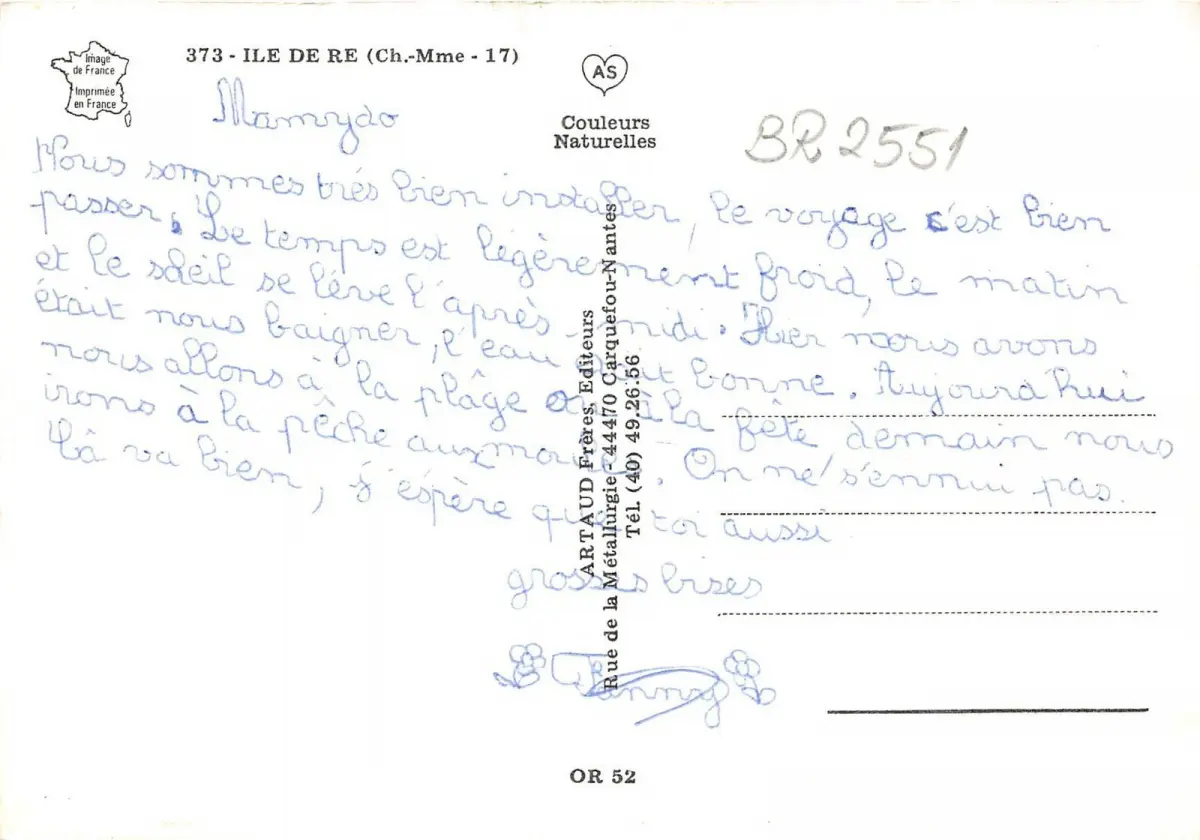 Image
de France
Imprimée
en France
373 - ILE DE RE (Ch.-Mme - 17)
AS
Couleurs
Naturelles
BR 2551
Mamydo
Nous sommes très bien installer, le voyage c'est bien
passer. Le temps est légèrement froid, le matin
et le soleil se lève l'après-midi. Hier nous avons
était nous baigner, l'eau était bonne. Aujourd'hui
nous allons à la plâge ou à la fête demain nous
irons à la pêche aux moules. On ne s'ennui pas.
va bien, j'éspère que toi aussi
grosses bises
Fanny
ARTAUD Frères, Editeurs
Rue de la Métallurgie - 44470 Carquefou-Nantes
Tél. (40) 49.26.56
OR 52